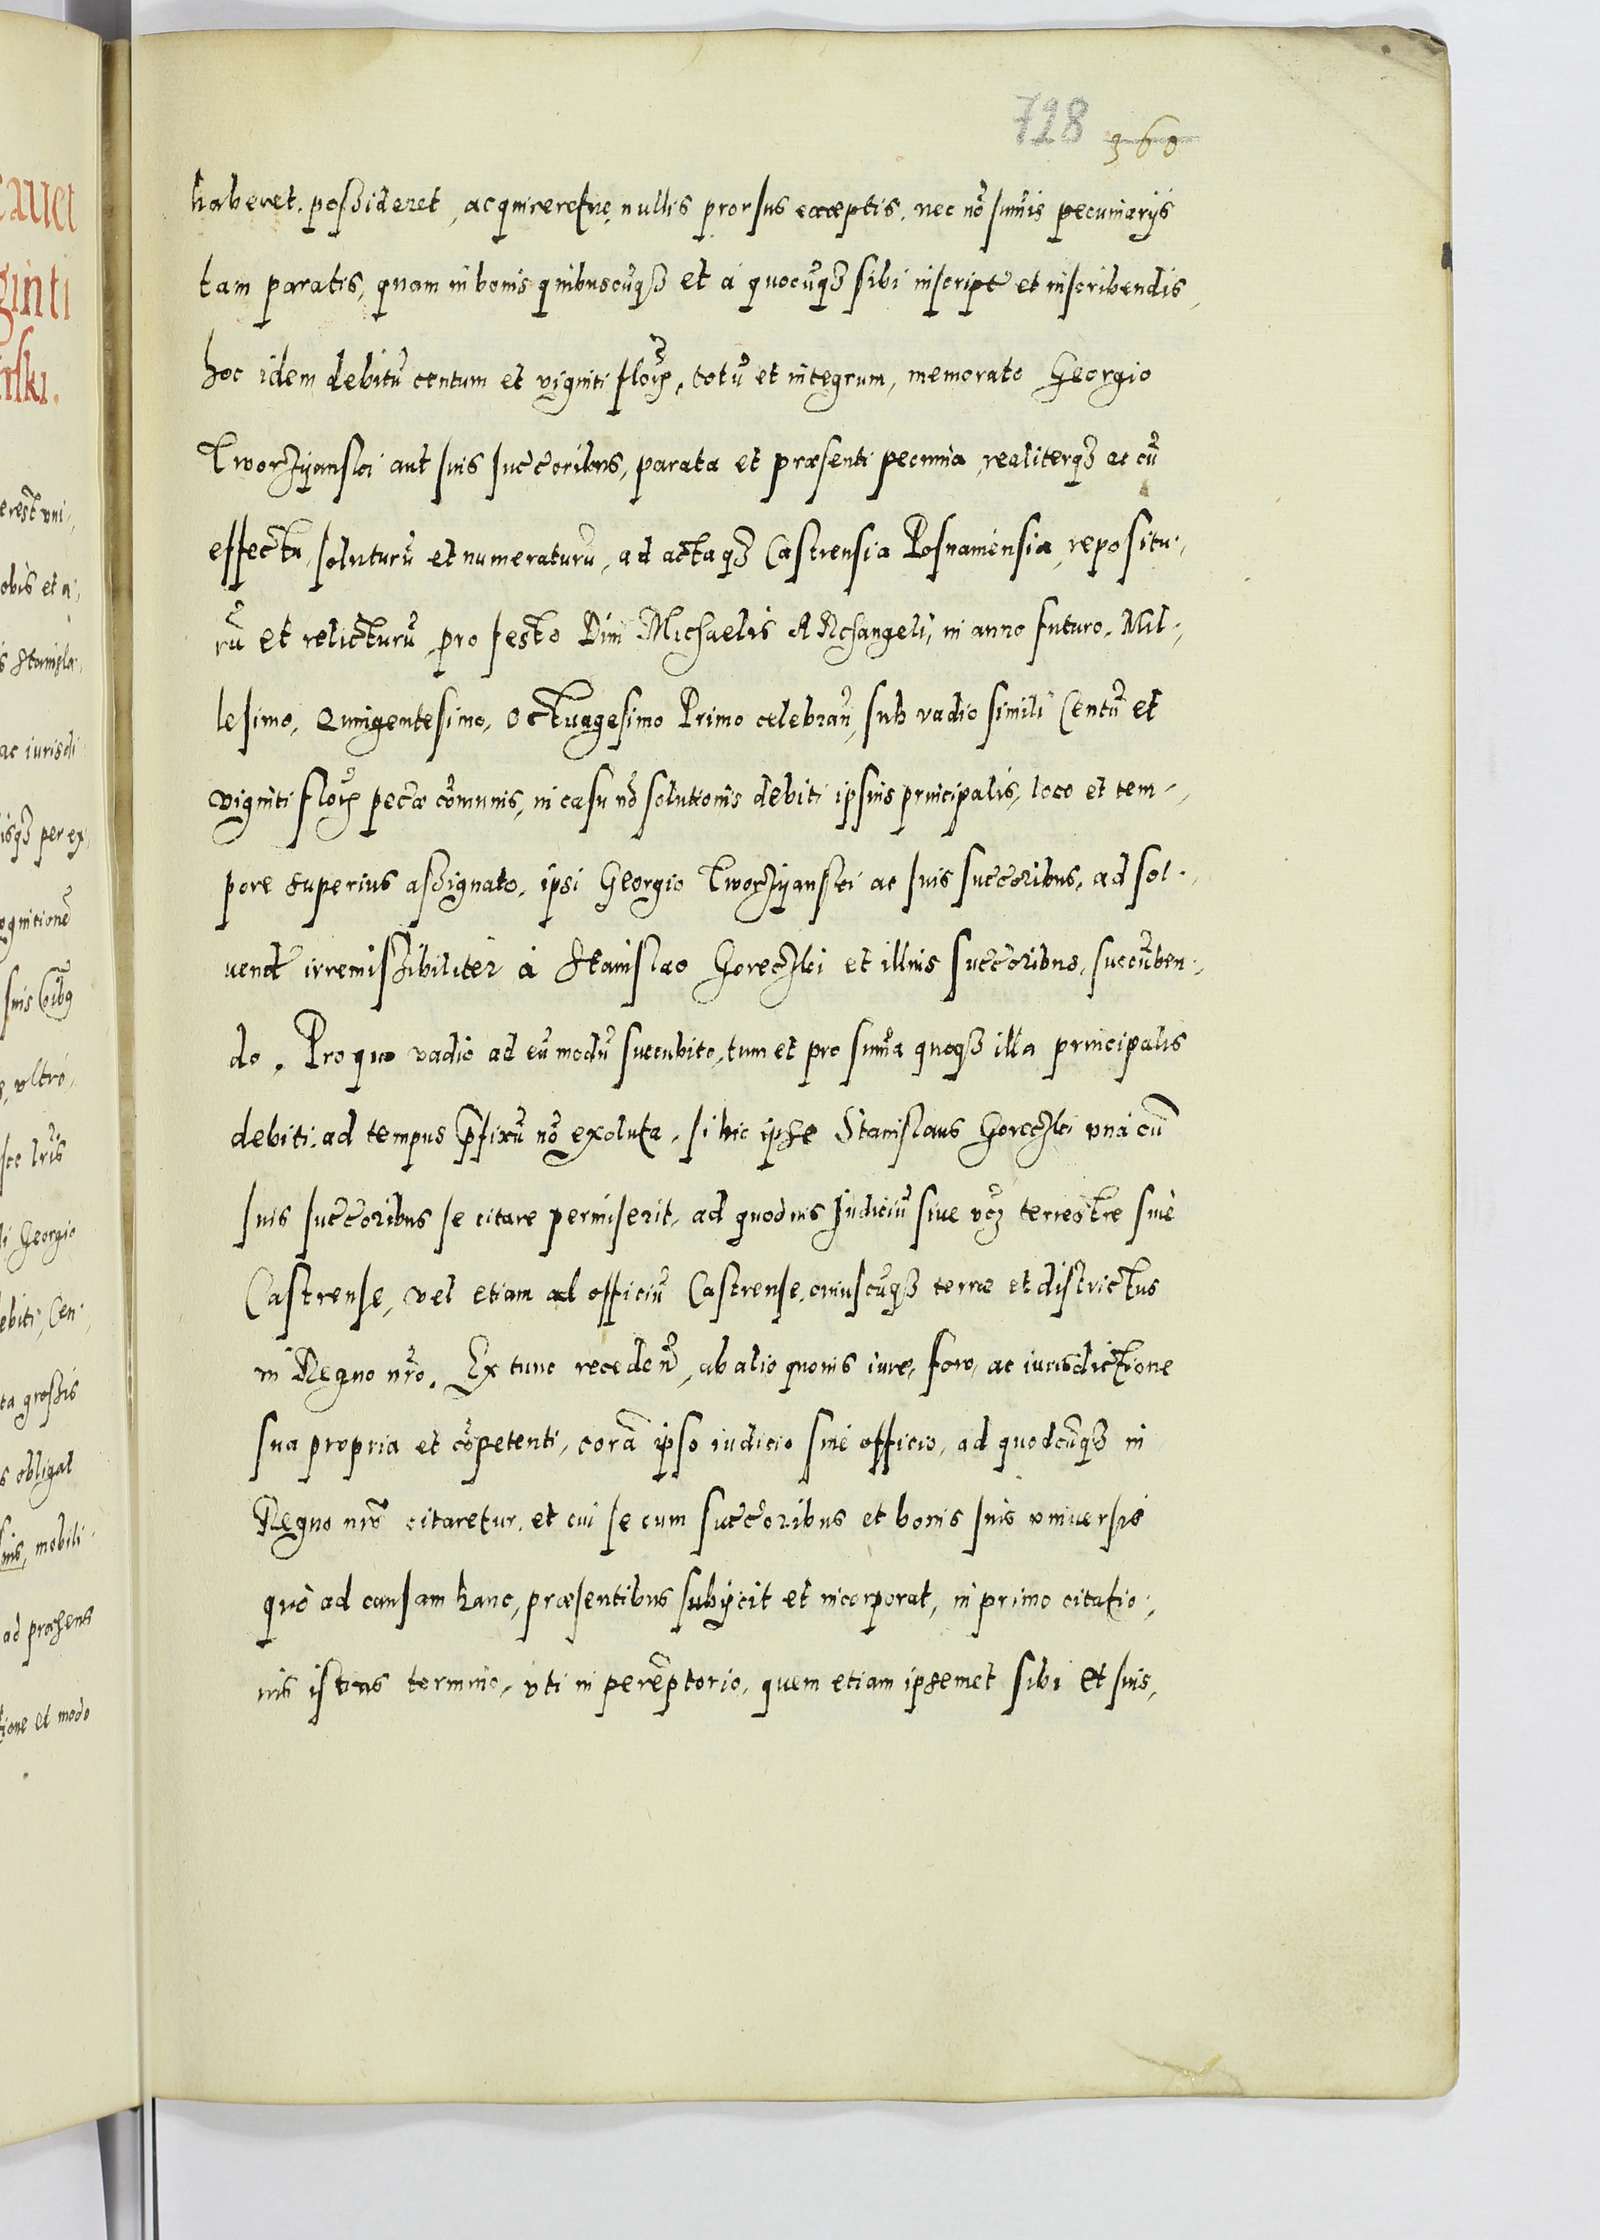 728 360
haberet, possideret, acquireretue, nullis prorsus exceptis, nec nō sum̃is pecuniarijs
tam paratis, quam in bonis quibuscūq3 et à quocūq3 sibi inscript̃ et inscribendis,
hoc idem debitū centum et viginti floꝝ, totū et integrum, memorato Georgio
Tworzÿanski aut suis succ̃oribus, parata et præsenti pecunia, realiterq3 ac cū
effectu, soluturū et numeraturū, ad actaq3 Castrensia Posnaniensia, repositu-,
rū et relicturū, pro festo Diui Michaelis ARchangeli, in anno futuro, Mil-,
lesimo, Quingentesimo, Octuagesimo Primo celebran̄, sub vadio simili Centū et
viginti floꝝ pec̃æ cōmunis, in casu nō solutionis debiti ipsius principalis, loco et tem-,
pore superius assignato, ipsi Georgio Tworzÿanski ac suis succ̃oribus, ad sol-,
uend̃ irremissibiliter à Stanislao Goreczki et illius succ̃oribus, succūben-,
do. Pro quo vadio ad eū modū succubito, tum et pro sum̃a quoq3 illa principalis
debiti, ad tempus p̄fixū nō exoluta, si hic ipse Stanislaus Goreczki vnà cū
suis succ̃oribus se citare permiserit, ad quoduis Iudiciū siue vcz terrestre siuè
Castrense, vel etiam ad officiū Castrense, cuiuscūq3 terræ et districtus
in Regno nr̃o. Ex tunc recedeñ, ab alio quouis iure, foro, ac iurisdictione
sua propria et cōpetenti, corā ipso iudicio siuè officio, ad quodcūq3 in
Regno nr̃o citaretur, et cui se cum succ̃oribus et bonis suis vniuersis
quò ad causam hanc, præsentibus subÿcit et incorporat, in primo citatio-,
nis istius termino, vti in perēptorio, quem etiam ipsemet sibi et suis,